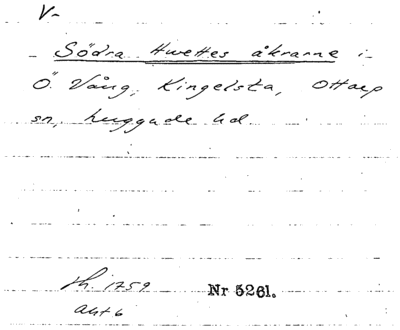 V-
Södra Hwettes åkrarne i
Ö. Vång, Kingelsta, Ottarp
sn, huggade ud
h. 1759
akt 6
Nr 5261.